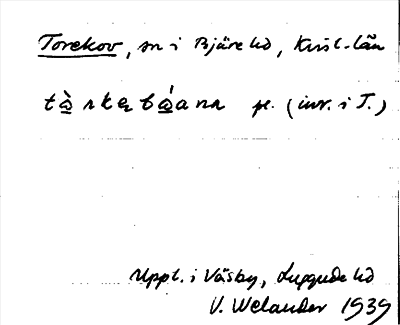 Torekov, sn i Bjäre hd, Krist-län
tà̱rkebá̱ana pl. (inv. i T.)
Uppt. i Väsby, Luggude hd
V. Welander 1939